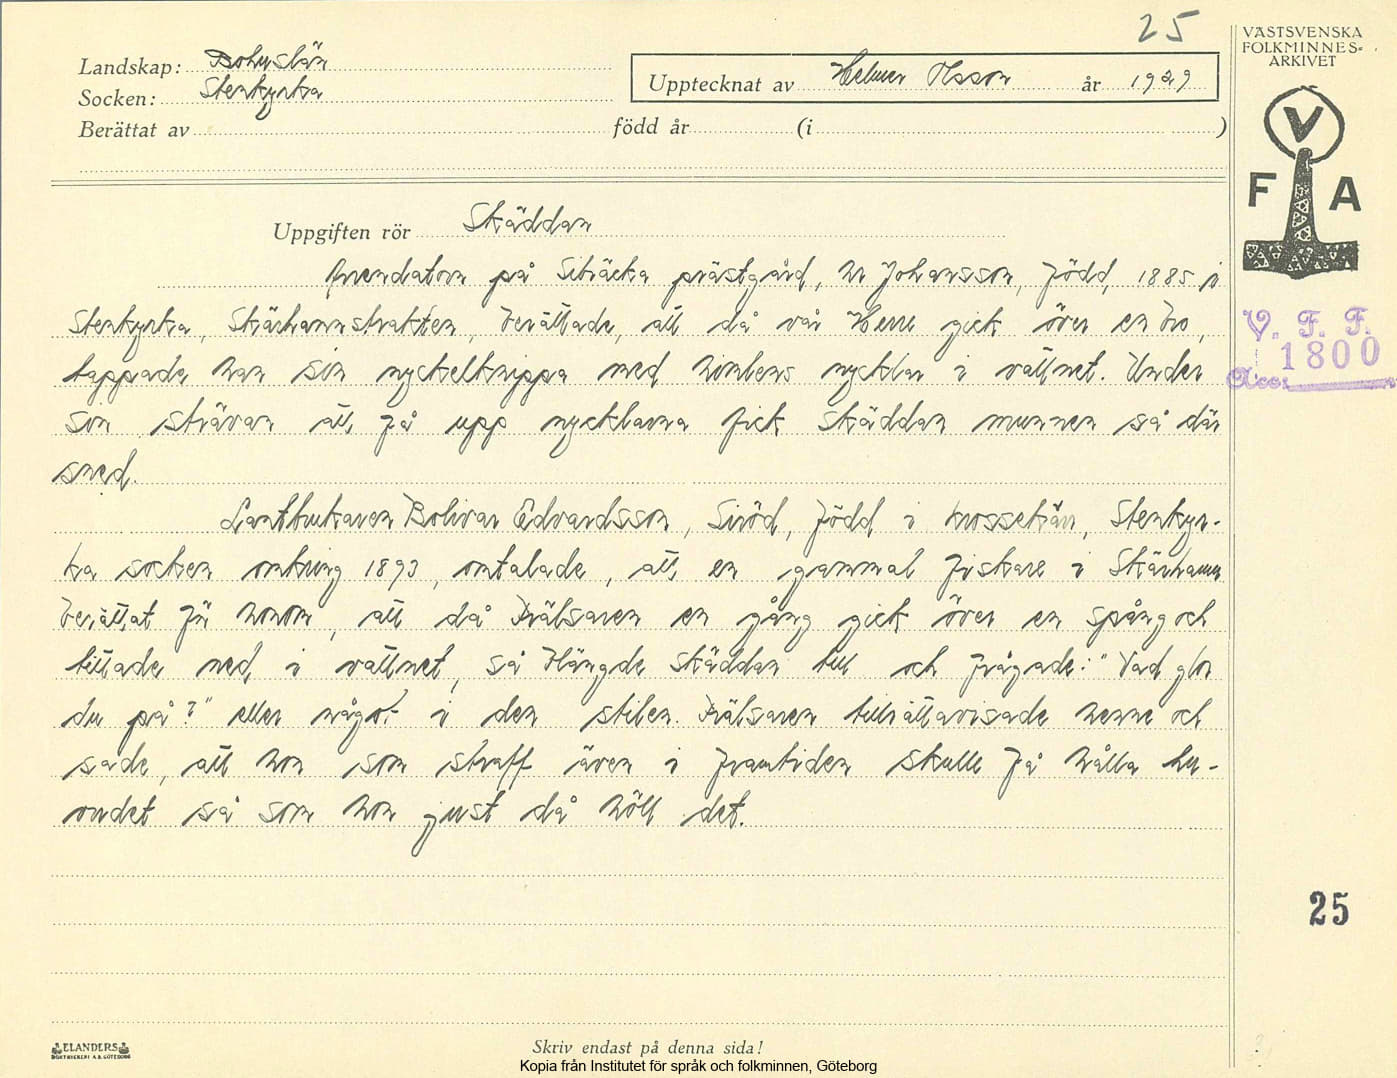 25
VÄSTSVENSKA
FOLKMINNES-
ARKIVET
Landskap: Bohuslän
Upptecknat av Helmer Olsson år 1929
Socken: Stenkyrka
Berättat av född år (i )
V
F A
Uppgiften rör Skäddan
Arrendatorn på Sibräcka prästgård, hr Johansson, född, 1885 i
Stenkyrka, Skärhamnstrakten, berättade, att då vår Herre gick över en bro,
tappade han sin nyckelknippa med himlens nycklar i vattnet. Under
sin strävan att få upp nycklarna fick skäddan munnen så där
sned.
V. F. F.
Acc. 1800
Lantbrukaren Bolivar Edvardsson, Siröd, född i Krossekärr, Stenkyr-
ka socken omkring 1893, omtalade, att en gammal fiskare i Skärhamn
berättat för honom, att då Frälsaren en gång gick över en spång och
tittade ned i vattnet, så slängde skäddan till och frågade: "Vad glor
du på?" eller något i den stilen. Frälsaren tillrättavisade henne och
sade, att hon som straff även i framtiden skulle få hålla hu-
vudet så som hon just då höll det.
25
ELANDERS
BOKTRYCKERI A.B. GÖTEBORG
Skriv endast på denna sida!
Kopia från Institutet för språk och folkminnen, Göteborg